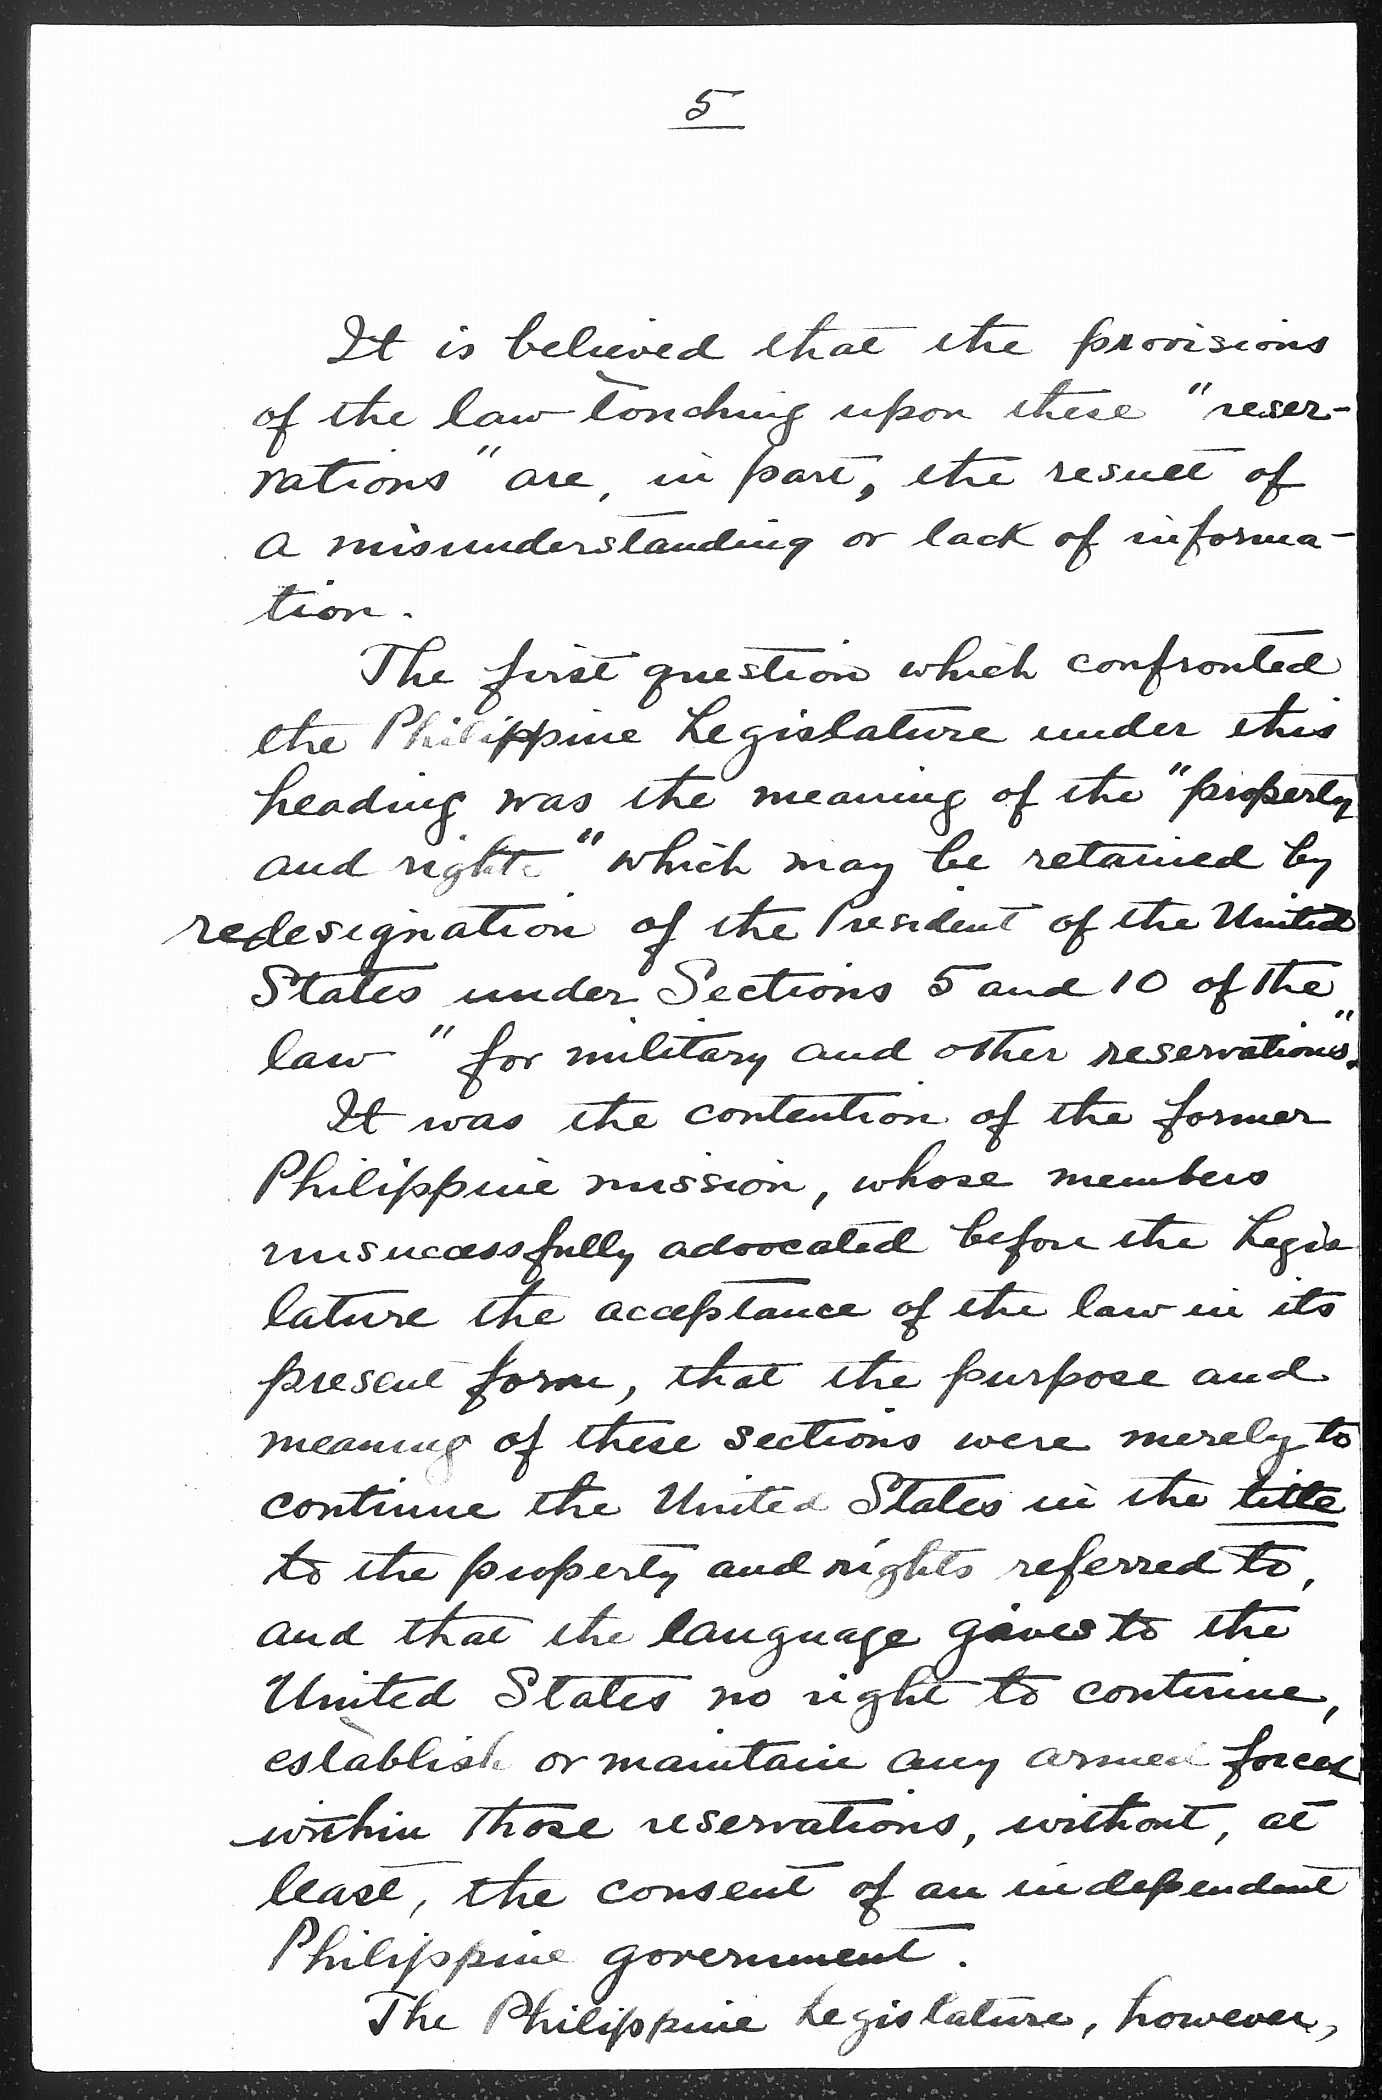 5
It is believed that the provisions
of the law touching upon these "reser-
vations" are, in part, the result of
a misunderstanding or lack of informa-
tion.
The first question which confronted
the Philippine Legislature under this
heading was the meaning of the "property
and rights" which may be retained by
redesignation of the President of the United
States under Sections 5 and 10 of the
law "for military and other reservations."
It was the contention of the former
Philippine mission, whose members
unsuccessfully advocated before the Legis
lature the acceptance of the law in its
present form, that the purpose and
meaning of these sections were merely to
continue the United States in the title
to the property and rights referred to,
and that the language gives to the
United States no right to continue,
establish or maintain any armed forces
within those reservations, without, at
least, the consent of an independent
Philippine government.
The Philippine Legislature, however,